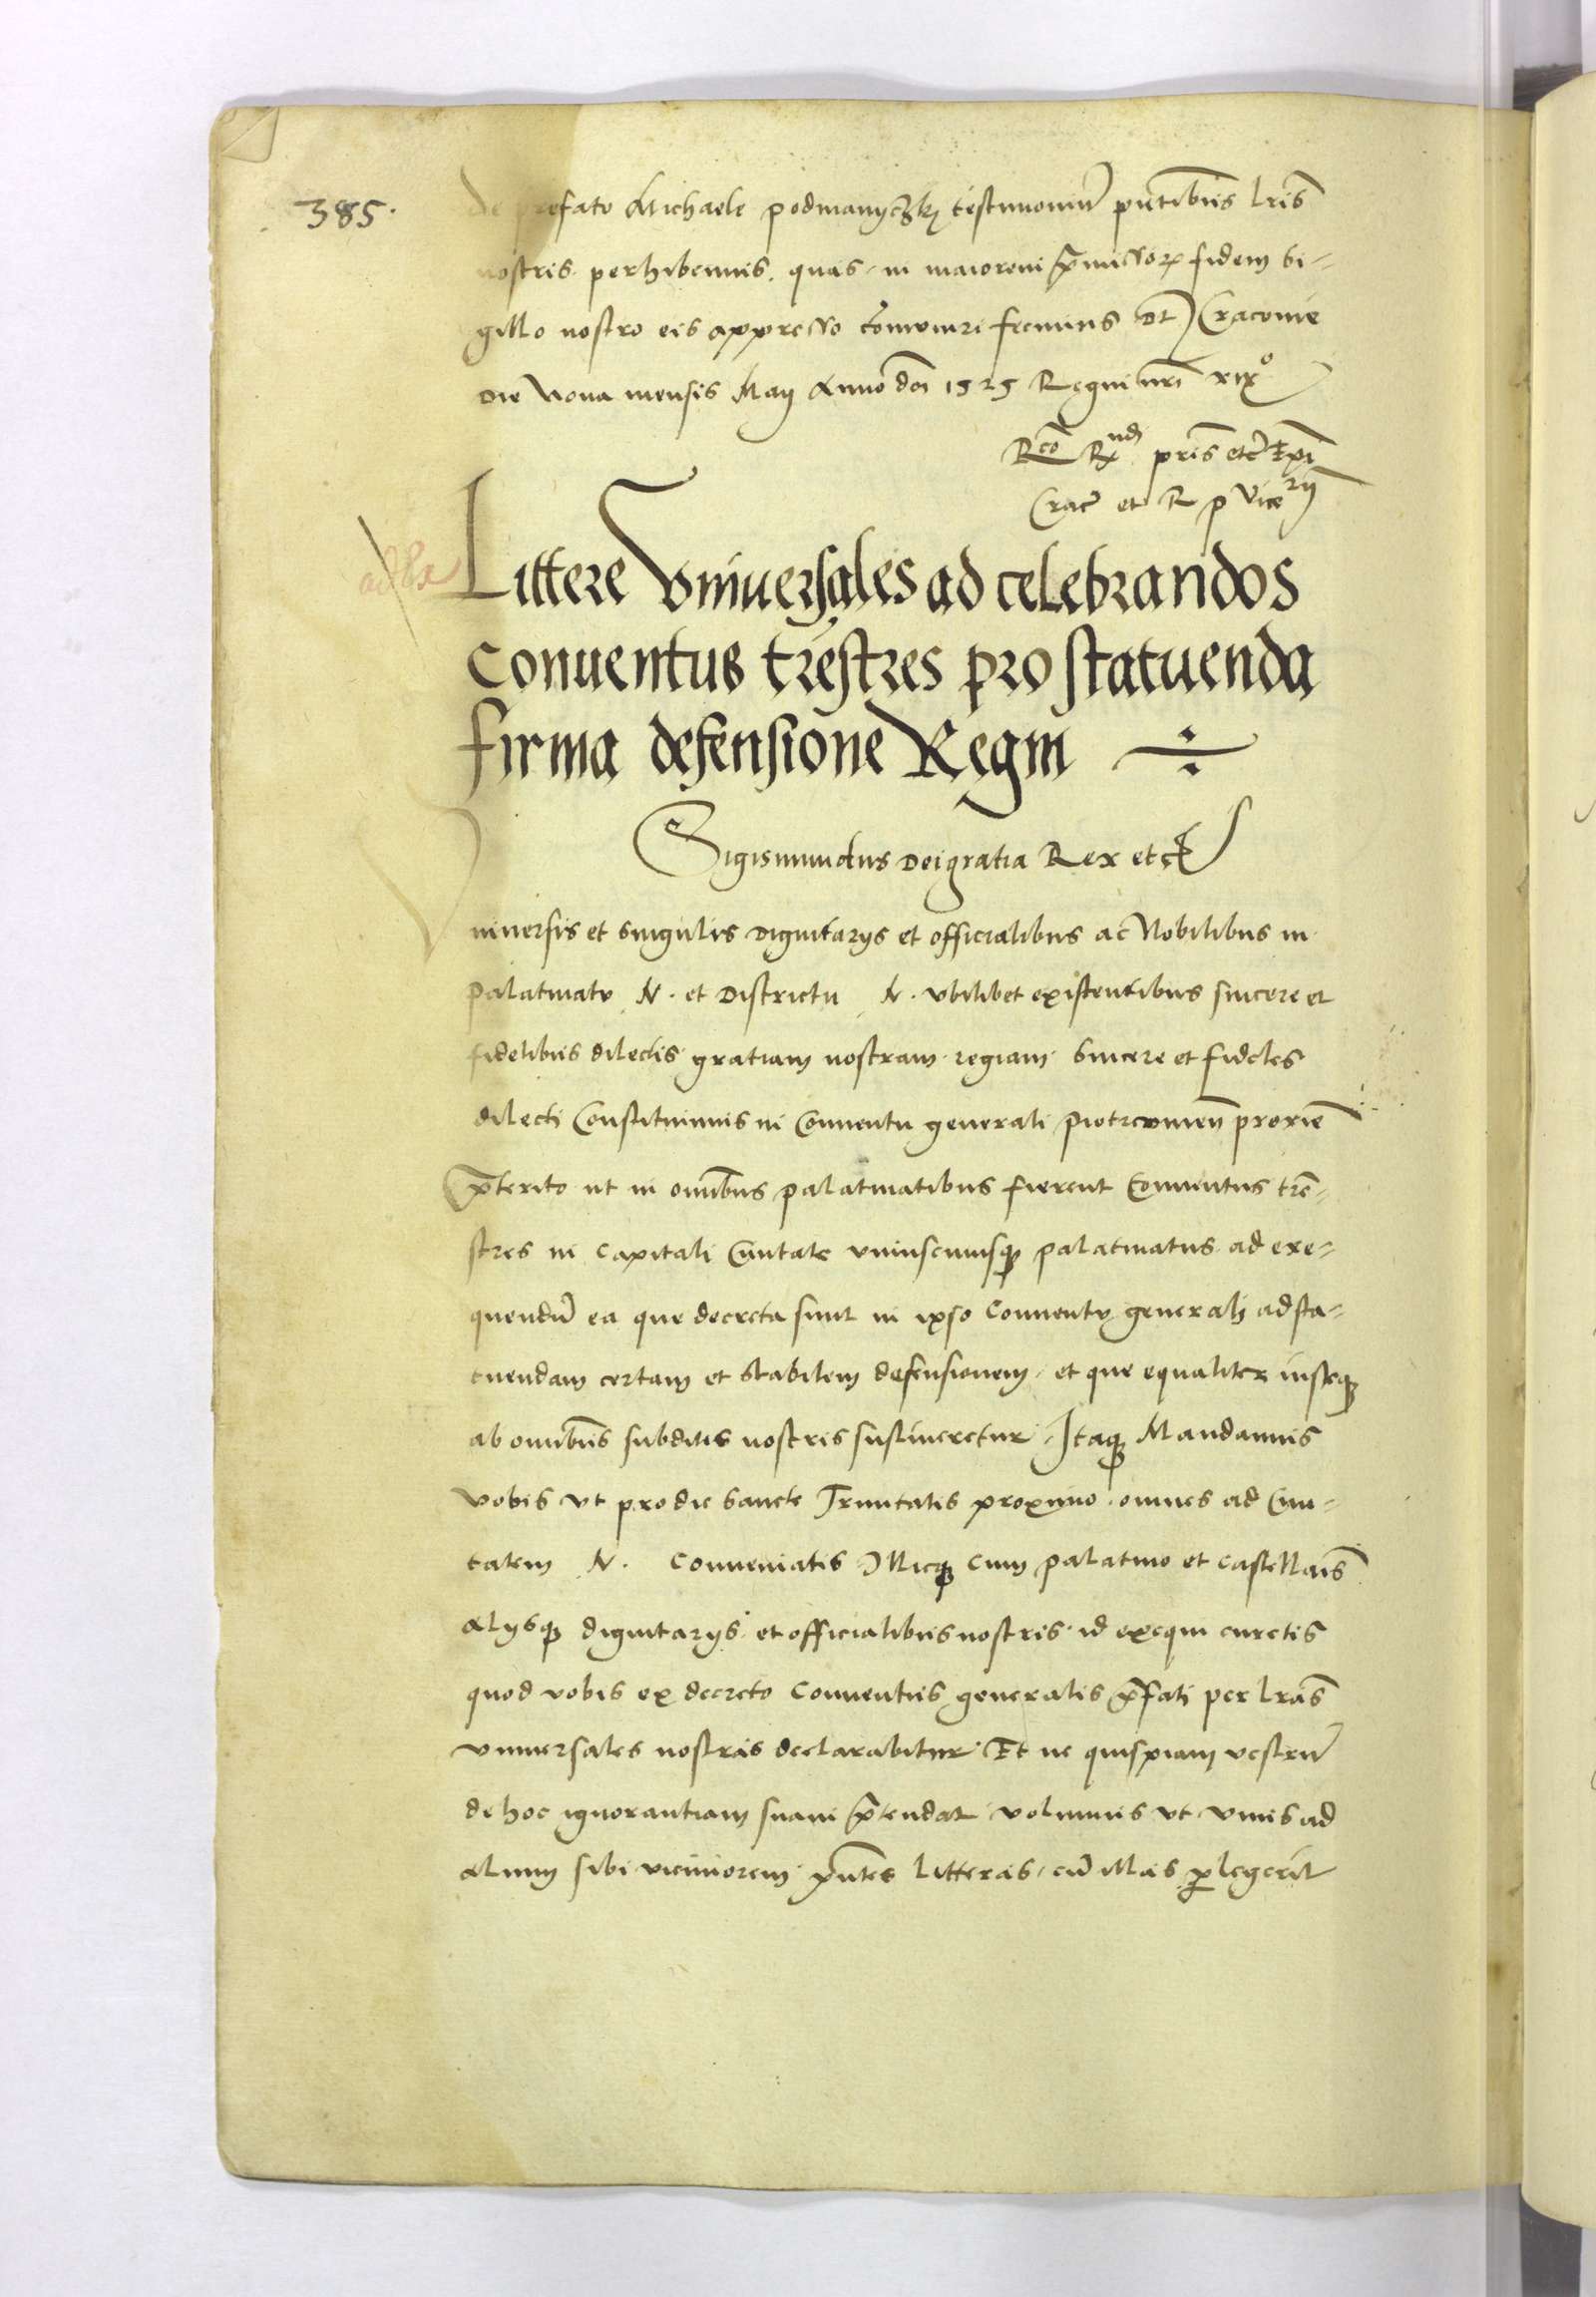 385.
de prefato Michaele podmanyczkj testimoniū pūtibus lris̄
nostris perhibemus. quas in maiorem p̄missorꝝ fidem si-
gillo nostro eis appresso c̄omuniri fecimus Dt) Cracovie
die Nona mensis Maij Anno dni 1525 Regni nr̄i xixº
Rco Rndi pris̄ etc̄ Epi
Crac̄ et R p vicerij
Littere Vniuersales ad celebrandos
Conuentus tr̄estres pro statuenda
firma defensione Regni ÷
Sigismundus dei gratia Rex etc
Vniuersis et singulis dignitarijs et officialibus ac Nobilibus in
palatinatu N. et districtu N. vbilibet existentibus sincere et
fidelibus dilectis gratiam nostram regiam Sincere et fideles
dilecti Constituimus in Conuentu generali piotrcouien̄ proxime
p̄terito ut in omībus palatinatibus fierent Conuentus tr̄e-
stres in capitali Ciuitate vniuscuiusqꝫ palatinatus ad exe-
quendū ea que decreta sunt in ipso Conuentu generalj ad sta-
tuendam certam et stabilem defensionem et que equaliter iusteqꝫ
ab omībus subditis nostris sustineretur Itaqꝫ Mandamus
vobis vt pro die Sancte Trinitatis proximo omnes ad Ciui-
tatem N. Conueniatis Illicqꝫ cum palatino et castellanis̄
alijsqꝫ dignitarijs et officialibus nostris id exequi curetis
quod vobis ex decreto Conuentus generalis p̄fati per lrās
vniuersales nostras declarabitur Et ne quispiam vestrū
de hoc ignorantiam suam p̄tendat volumus vt vnus ad
alium sibi viciniorem p̄ntes litteras cū illas ꝑlegerit